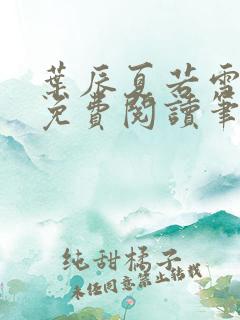 葉辰夏若雪
免費閱讀筆
純甜橘子
未经同意禁止转载